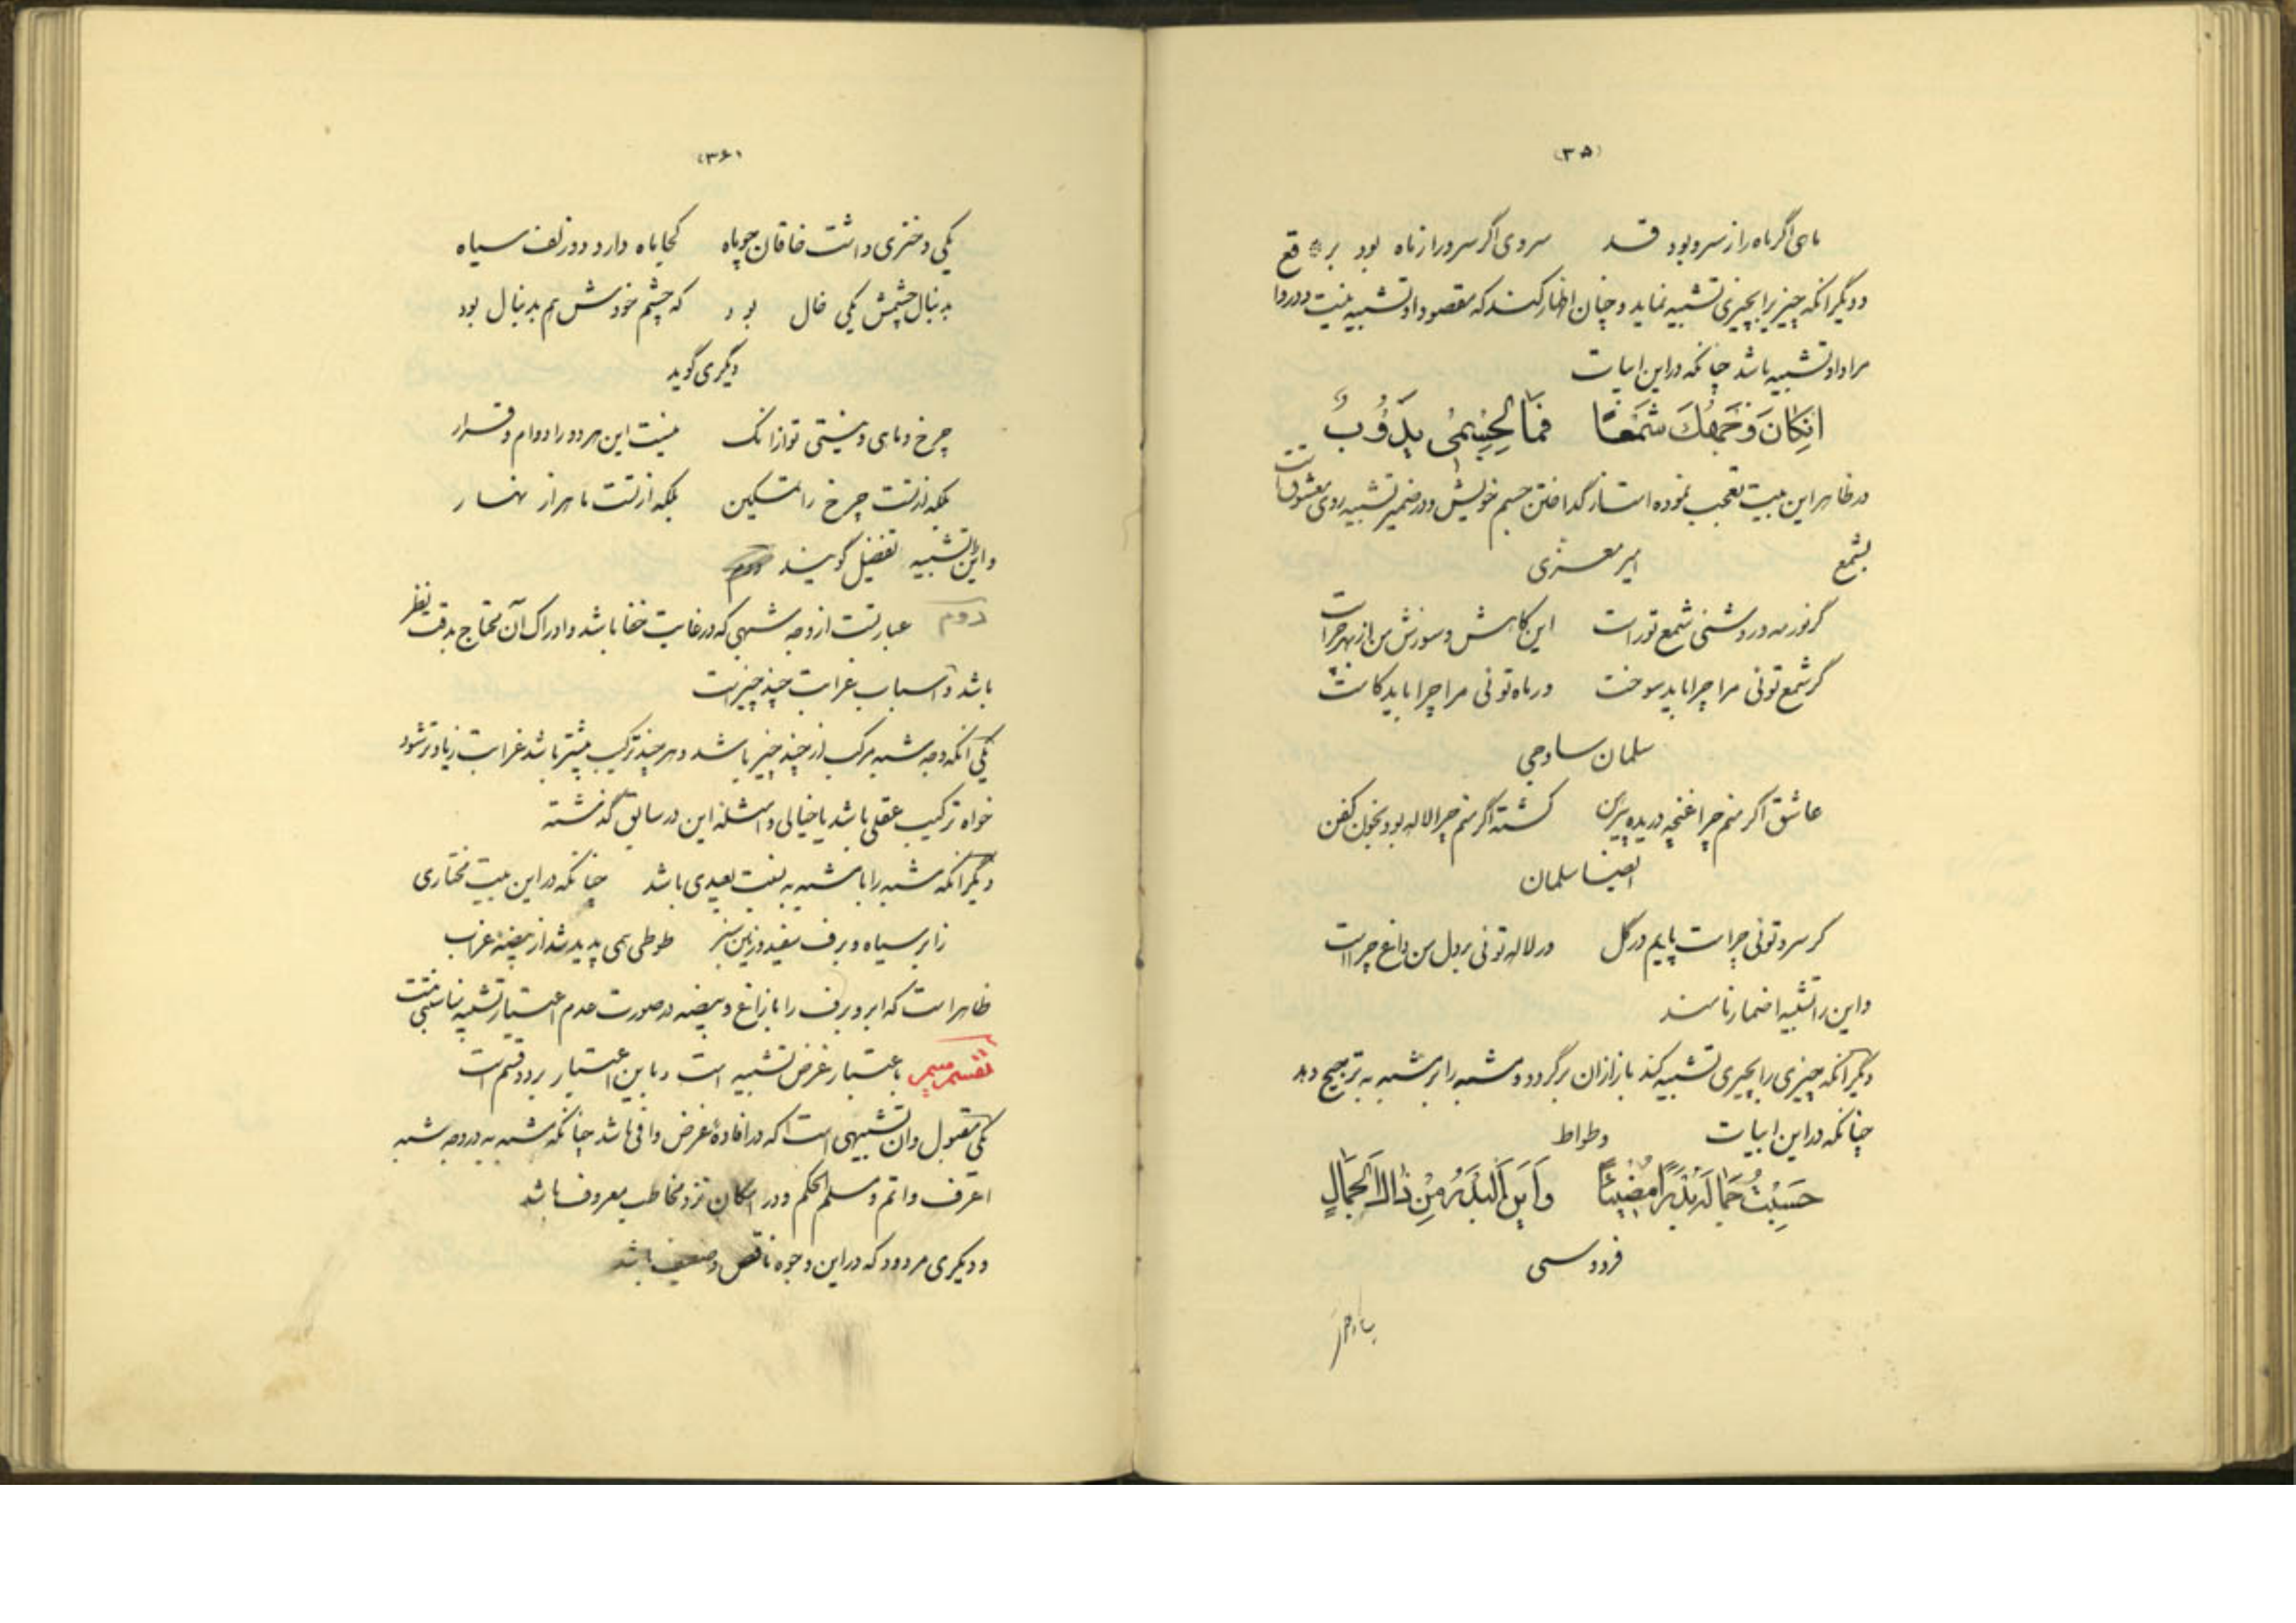 (۳۵)
ماهی اگر ماه را ز سرو بود قد سروی اگر سرو را ز ماه بود بر
و دیگر آنکه چیزیرا بچیزی تشبیه نماید و چنان اظهار کند که مقصود او تشبیه نیست و در
مراد او تشبیه باشد چنانکه در این ابیات
اِنکانَ وَجهُكَ شَمعًا فَمَا لِجِسمی یَذُوبُ
در ظاهر این بیت تعجب نموده است از گداختن جسم خویش و در ضمیر تشبیه روی معشوق است
بشمع امیر معزی
گر نور مه و روشنی شمع تو راست این کاهش و سوزش من از بهر چراست
گر شمع توئی مرا چرا باید سوخت ور ماه توئی مرا چرا باید کاست
سلمان ساوجی
عاشق اگر منم چرا غنچه دریده پیرهن کشته اگر منم چرا لاله بود بخون کفن
ایضا سلمان
گر سرو توئی چراست پایم در گل ور لاله توئی بر دل من داغ چراست
و این را تشبیه اضمار نامند
دیگر آنکه چیزی را بچیزی تشبیه کند باز از آن برگردد و مشبه را بر مشبه به ترجیح دهد
چنانکه در این ابیات وطواط
حَسِبتُ جَمالَهُ بَدرًا مُضیئًا وَاَینَ البَدرُ مِن ذاكَ الجَمالِ
فردوسی
(۳۶)
یکی دختری داشت خاقان چو ماه کجا ماه دارد دو زلف سیاه
بدنبال چشمش یکی خال بود که چشم خودش هم بدنبال بود
دیگری گوید
چرخ و ماهی و نیستی تو از آنک نیست این هر دو را دوام و قرار
بلکه از تست چرخ را تسکین بلکه از تست ماه را ز نهار
و این تشبیه تفضیل گویند
دوم عبارتست از وجه شبهی که در غایت خفا باشد و ادراک آن محتاج بدقت نظر
باشد و اسباب غرابت چند چیز است
یکی آنکه وجه شبه مرکب از چند چیز باشد و هر چند ترکیب بیشتر باشد غرابت زیادتر شود
خواه ترکیب عقلی باشد یا خیالی و امثله این در سابق گذشته
دیگر آنکه مشبه را با مشبه به نسبت بعیدی باشد چنانکه در این بیت مختاری
ز ابر سیاه و برف سفید و زمین سبز طوطی همی پدید شد از بیضه غراب
ظاهر است که ابر و برف را با زاغ و بیضه در صورت عدم اعتبار تشبیه مناسبتی نیست
تقسیم باعتبار غرض تشبیه است و باین اعتبار بر دو قسم است
یکی مقبول و آن تشبیهی است که در افادهٔ غرض وافی باشد چنانکه مشبه به در وجه شبه
اعرف و اتم و مسلم الحکم و در امکان نزد مخاطب معروف باشد
و دیگری مردود که در این وجوه ناقص و ضعیف باشد